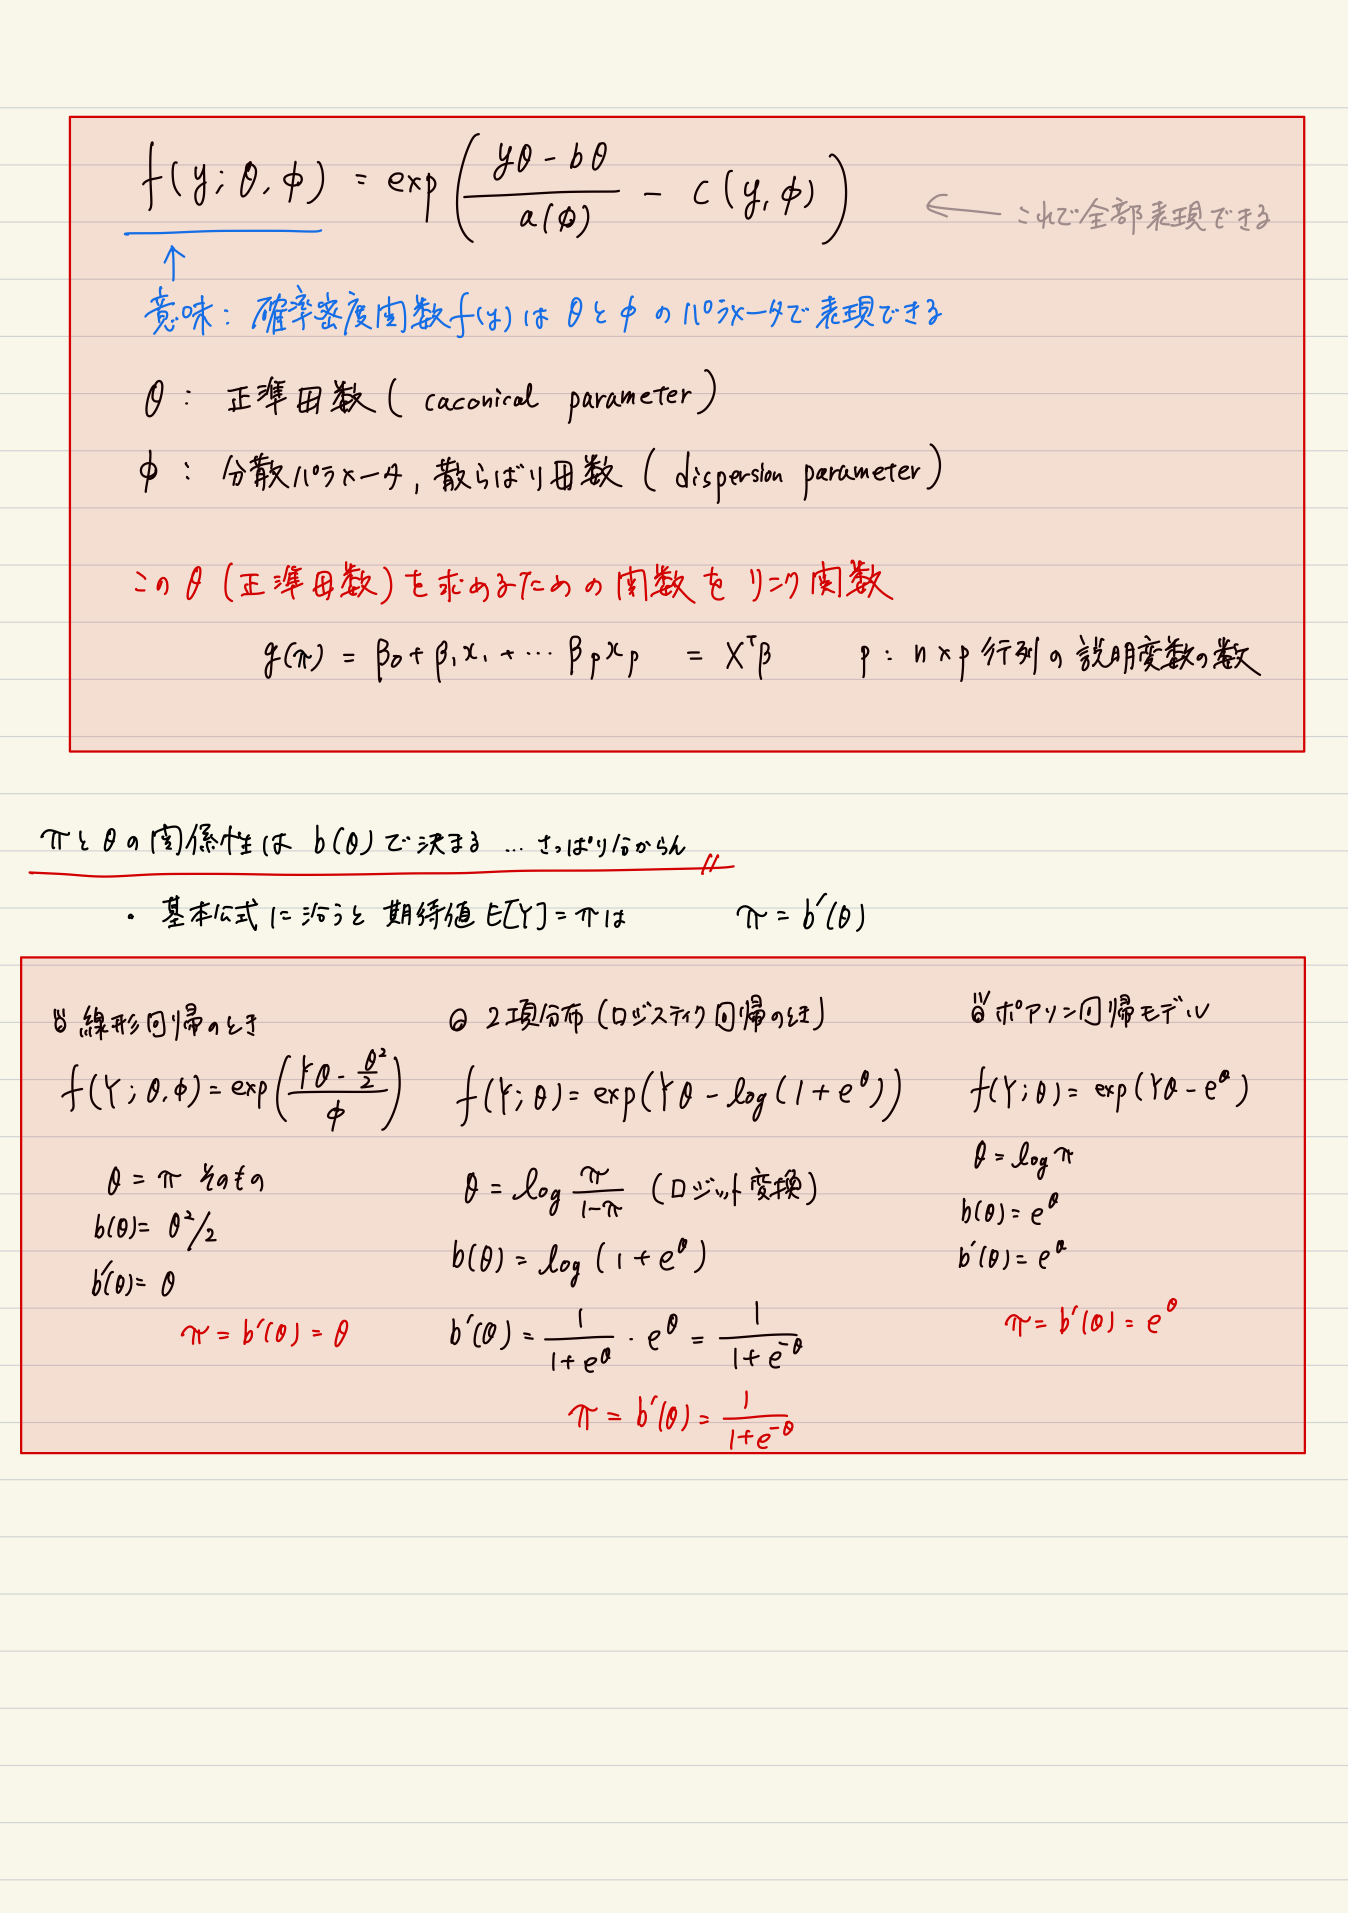 f(y; θ, φ) = exp( (yθ - bθ)/a(φ) - c(y, φ) ) ← これで全部表現できる
↑
意味: 確率密度関数f(y)は θと φ のパラメータで表現できる
θ: 正準母数( caconical parameter)
φ: 分散パラメータ, 散らばり母数( dispersion parameter)
この θ (正準母数)を求めるための関数を リンク関数
g(π) = β₀ + β₁x₁ + … βₚxₚ = Xᵀβ p: n×p 行列の説明変数の数
πと θの関係性は b(θ)で決まる … さっぱり分からん
・ 基本公式に沿うと 期待値 E[Y]=πは π = b′(θ)
線形回帰のとき
f(Y; θ, φ) = exp( (Yθ - θ²/2)/φ )
θ = π そのもの
b(θ) = θ²/2
b′(θ) = θ
π = b′(θ) = θ
2項分布 (ロジスティク回帰のとき)
f(Y; θ) = exp(Yθ - log(1 + e^θ))
θ = log π/(1-π) (ロジット変換)
b(θ) = log (1 + e^θ)
b′(θ) = 1/(1+e^θ) · e^θ = 1/(1+e^-θ)
π = b′(θ) = 1/(1+e^-θ)
ポアソン回帰モデル
f(Y; θ) = exp(Yθ - e^θ)
θ = log π
b(θ) = e^θ
b′(θ) = e^θ
π = b′(θ) = e^θ